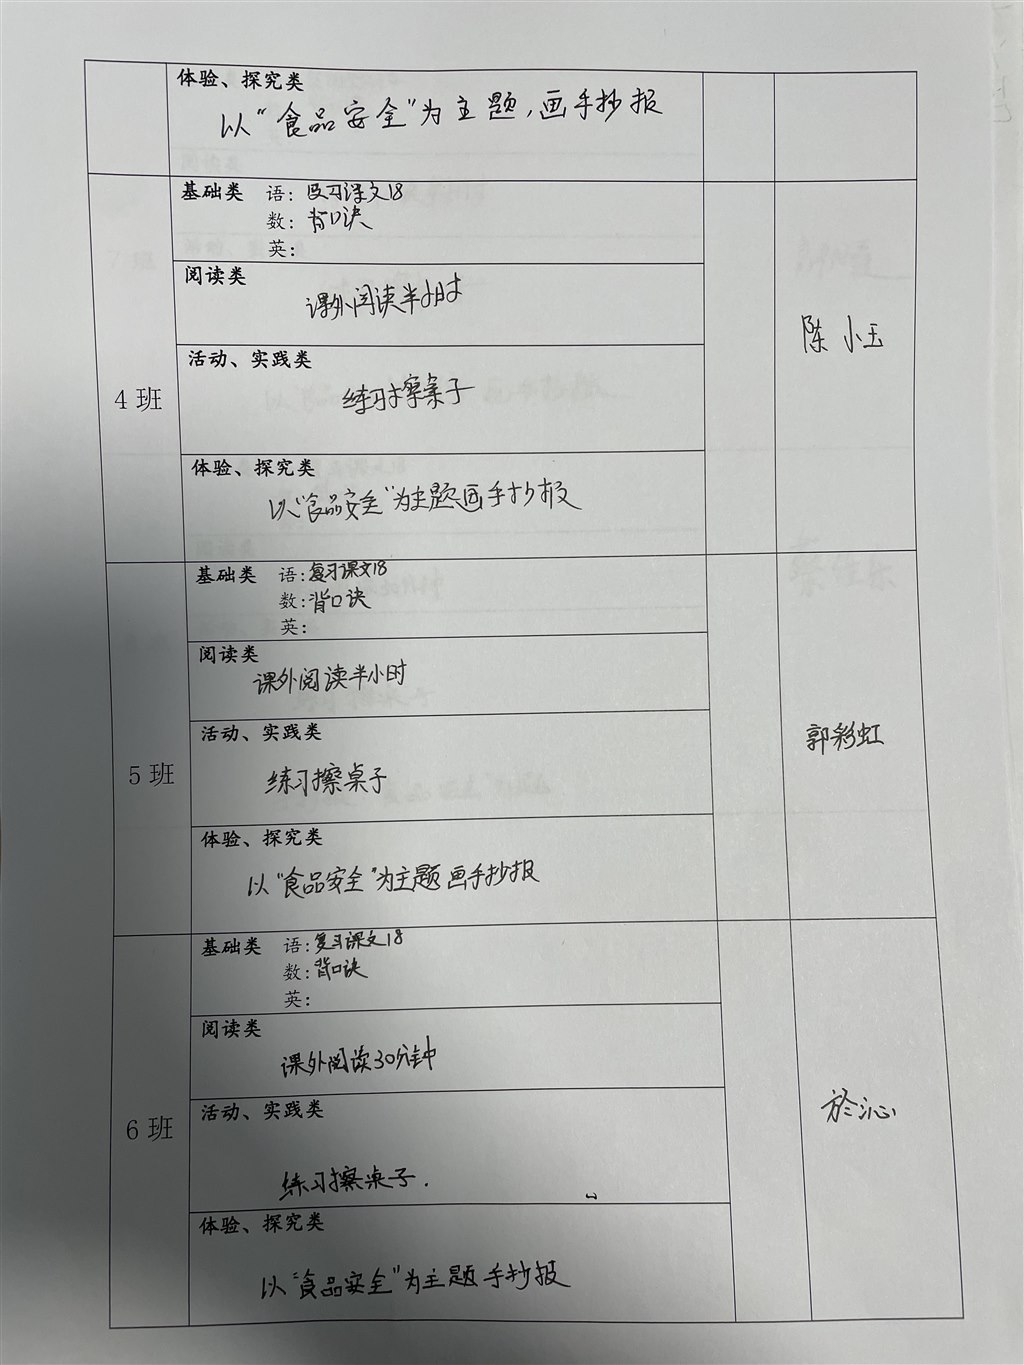 体验、探究类
以“食品安全”为主题，画手抄报
4班
基础类 语：复习课文18
数：背口诀
英：
阅读类
课外阅读半小时
活动、实践类
练习擦桌子
体验、探究类
以“食品安全”为主题画手抄报
陈小玉
5班
基础类 语：复习课文18
数：背口诀
英：
阅读类
课外阅读半小时
活动、实践类
练习擦桌子
体验、探究类
以“食品安全”为主题画手抄报
郭彩虹
6班
基础类 语：复习课文18
数：背口诀
英：
阅读类
课外阅读30分钟
活动、实践类
练习擦桌子.
体验、探究类
以“食品安全”为主题手抄报
於沁